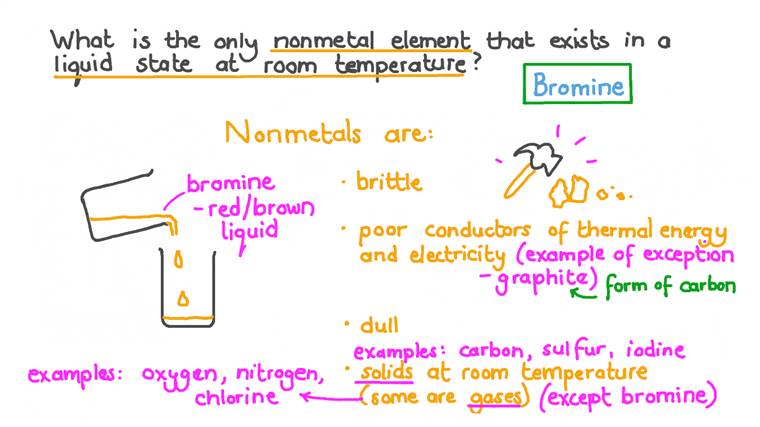 What is the only nonmetal element that exists in a
liquid state at room temperature?
Bromine
Nonmetals are:
bromine
-red/brown
liquid
· brittle
· poor conductors of thermal energy
and electricity (example of exception
-graphite)
form of carbon
· dull
examples: carbon, sulfur, iodine
examples: oxygen, nitrogen,
chlorine
· solids at room temperature
(some are gases) (except bromine)